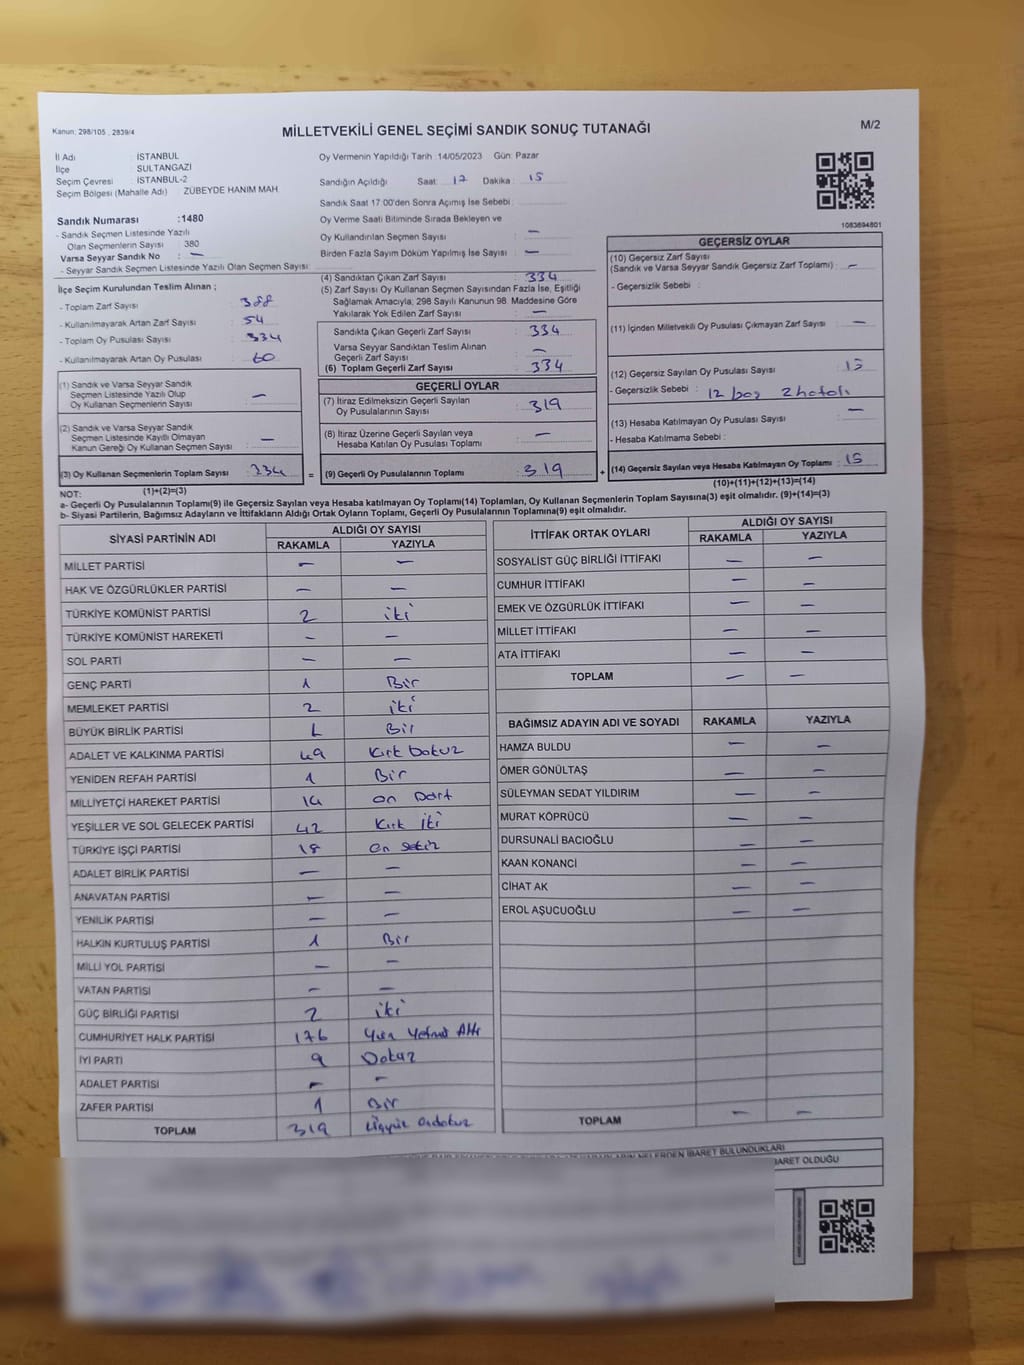 Kanun: 298/105 , 2839/4
MİLLETVEKİLİ GENEL SEÇİMİ SANDIK SONUÇ TUTANAĞI
M/2
İl Adı : İSTANBUL
İlçe : SULTANGAZİ
Seçim Çevresi : İSTANBUL-2
Seçim Bölgesi (Mahalle Adı) : ZÜBEYDE HANIM MAH.
Sandık Numarası :1480
- Sandık Seçmen Listesinde Yazılı
Olan Seçmenlerin Sayısı : 380
Varsa Seyyar Sandık No : —
- Seyyar Sandık Seçmen Listesinde Yazılı Olan Seçmen Sayısı :
Oy Vermenin Yapıldığı Tarih :14/05/2023 Gün: Pazar
Sandığın Açıldığı Saat: 17 Dakika : 15
Sandık Saat 17:00'den Sonra Açımış İse Sebebi :
Oy Verme Saati Bitiminde Sırada Bekleyen ve
Oy Kullandırılan Seçmen Sayısı : —
Birden Fazla Sayım Döküm Yapılmış İse Sayısı : —
1083694801
İlçe Seçim Kurulundan Teslim Alınan ;
- Toplam Zarf Sayısı : 388
- Kullanılmayarak Artan Zarf Sayısı : 54
- Toplam Oy Pusulası Sayısı : 334
- Kullanılmayarak Artan Oy Pusulası : 60
(1) Sandık ve Varsa Seyyar Sandık
Seçmen Listesinde Yazılı Olup
Oy Kullanan Seçmenlerin Sayısı : —
(2) Sandık ve Varsa Seyyar Sandık
Seçmen Listesinde Kayıtlı Olmayan
Kanun Gereği Oy Kullanan Seçmen Sayısı : —
(3) Oy Kullanan Seçmenlerin Toplam Sayısı : 334 =
(1)+(2)=(3)
(4) Sandıktan Çıkan Zarf Sayısı : 334
(5) Zarf Sayısı Oy Kullanan Seçmen Sayısından Fazla İse, Eşitliği
Sağlamak Amacıyla; 298 Sayılı Kanunun 98. Maddesine Göre
Yakılarak Yok Edilen Zarf Sayısı : —
Sandıkta Çıkan Geçerli Zarf Sayısı : 334
Varsa Seyyar Sandıktan Teslim Alınan
Geçerli Zarf Sayısı : —
(6) Toplam Geçerli Zarf Sayısı : 334
GEÇERLİ OYLAR
(7) İtiraz Edilmeksizin Geçerli Sayılan
Oy Pusulalarının Sayısı : 319
(8) İtiraz Üzerine Geçerli Sayılan veya
Hesaba Katılan Oy Pusulası Toplamı : —
(9) Geçerli Oy Pusulalarının Toplamı : 319 +
GEÇERSİZ OYLAR
(10) Geçersiz Zarf Sayısı
(Sandık ve Varsa Seyyar Sandık Geçersiz Zarf Toplamı) : —
- Geçersizlik Sebebi :
(11) İçinden Milletvekili Oy Pusulası Çıkmayan Zarf Sayısı : —
(12) Geçersiz Sayılan Oy Pusulası Sayısı : 15
- Geçersizlik Sebebi : 12 boş 2 hatalı
(13) Hesaba Katılmayan Oy Pusulası Sayısı : —
- Hesaba Katılmama Sebebi :
(14) Geçersiz Sayılan veya Hesaba Katılmayan Oy Toplamı : 15
(10)+(11)+(12)+(13)=(14)
NOT:
a- Geçerli Oy Pusulalarının Toplamı(9) ile Geçersiz Sayılan veya Hesaba katılmayan Oy Toplamı(14) Toplamları, Oy Kullanan Seçmenlerin Toplam Sayısına(3) eşit olmalıdır. (9)+(14)=(3)
b- Siyasi Partilerin, Bağımsız Adayların ve İttifakların Aldığı Ortak Oyların Toplamı, Geçerli Oy Pusulalarının Toplamına(9) eşit olmalıdır.
SİYASİ PARTİNİN ADI ALDIĞI OY SAYISI
RAKAMLA YAZIYLA
MİLLET PARTİSİ — —
HAK VE ÖZGÜRLÜKLER PARTİSİ — —
TÜRKİYE KOMÜNİST PARTİSİ 2 iki
TÜRKİYE KOMÜNİST HAREKETİ — —
SOL PARTİ — —
GENÇ PARTİ 1 Bir
MEMLEKET PARTİSİ 2 iki
BÜYÜK BİRLİK PARTİSİ 1 Bir
ADALET VE KALKINMA PARTİSİ 49 Kırk Dokuz
YENİDEN REFAH PARTİSİ 1 Bir
MİLLİYETÇİ HAREKET PARTİSİ 14 on Dört
YEŞİLLER VE SOL GELECEK PARTİSİ 42 Kırk iki
TÜRKİYE İŞÇİ PARTİSİ 18 on sekiz
ADALET BİRLİK PARTİSİ — —
ANAVATAN PARTİSİ — —
YENİLİK PARTİSİ — —
HALKIN KURTULUŞ PARTİSİ 1 Bir
MİLLİ YOL PARTİSİ — —
VATAN PARTİSİ — —
GÜÇ BİRLİĞİ PARTİSİ 2 iki
CUMHURİYET HALK PARTİSİ 176 Yüz Yetmiş Altı
İYİ PARTİ 9 Dokuz
ADALET PARTİSİ — —
ZAFER PARTİSİ 1 Bir
TOPLAM 319 üçyüz ondokuz
İTTİFAK ORTAK OYLARI ALDIĞI OY SAYISI
RAKAMLA YAZIYLA
SOSYALİST GÜÇ BİRLİĞİ İTTİFAKI — —
CUMHUR İTTİFAKI — —
EMEK VE ÖZGÜRLÜK İTTİFAKI — —
MİLLET İTTİFAKI — —
ATA İTTİFAKI — —
TOPLAM — —
BAĞIMSIZ ADAYIN ADI VE SOYADI RAKAMLA YAZIYLA
HAMZA BULDU — —
ÖMER GÖNÜLTAŞ — —
SÜLEYMAN SEDAT YILDIRIM — —
MURAT KÖPRÜCÜ — —
DURSUNALİ BACIOĞLU — —
KAAN KONANCİ — —
CİHAT AK — —
EROL AŞUCUOĞLU — —
TOPLAM — —
NELERDEN İBARET BULUNDUKLARI
BARET OLDUĞU